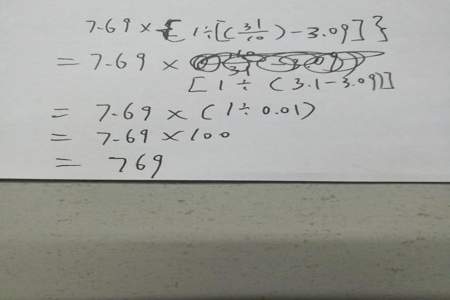 7.69 × { 1÷[(31/10) - 3.09] }
= 7.69 ×
[ 1 ÷ (3.1-3.09)]
= 7.69 × (1÷0.01)
= 7.69 × 100
= 769